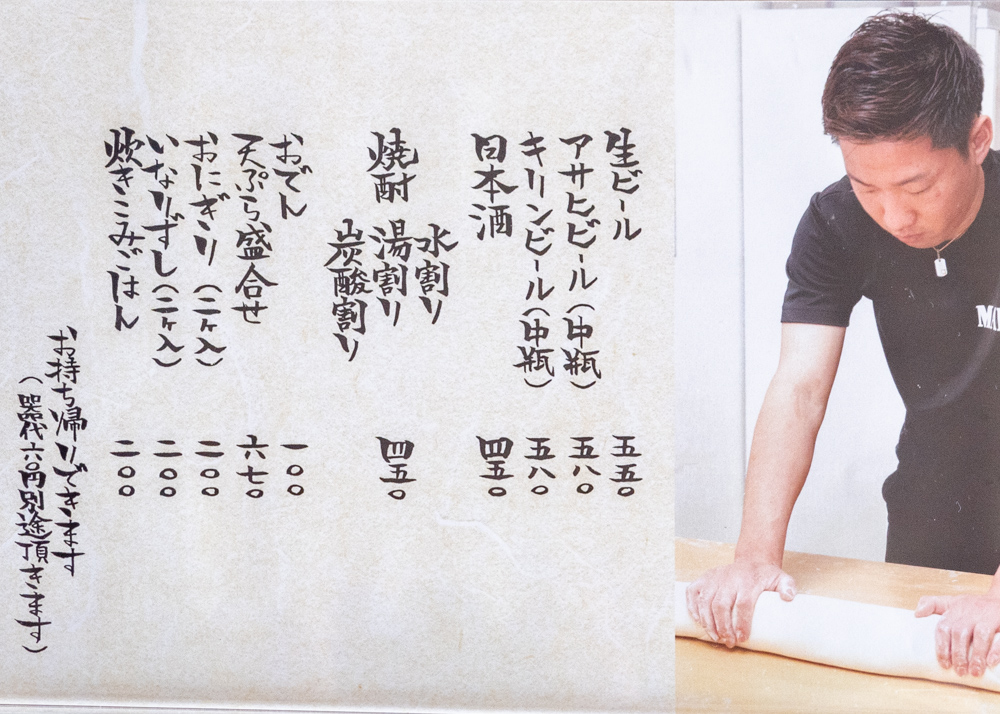 生ビール 五五〇
アサヒビール(中瓶) 五八〇
キリンビール(中瓶) 五八〇
日本酒 四五〇
焼酎 水割り
湯割り 四五〇
炭酸割り
おでん 一〇〇
天ぷら盛合せ 六七〇
おにぎり(二ヶ入) 二〇〇
いなりずし(二ヶ入) 二〇〇
炊きこみごはん 二〇〇
お持ち帰りできます
(器代六〇円別途頂きます)